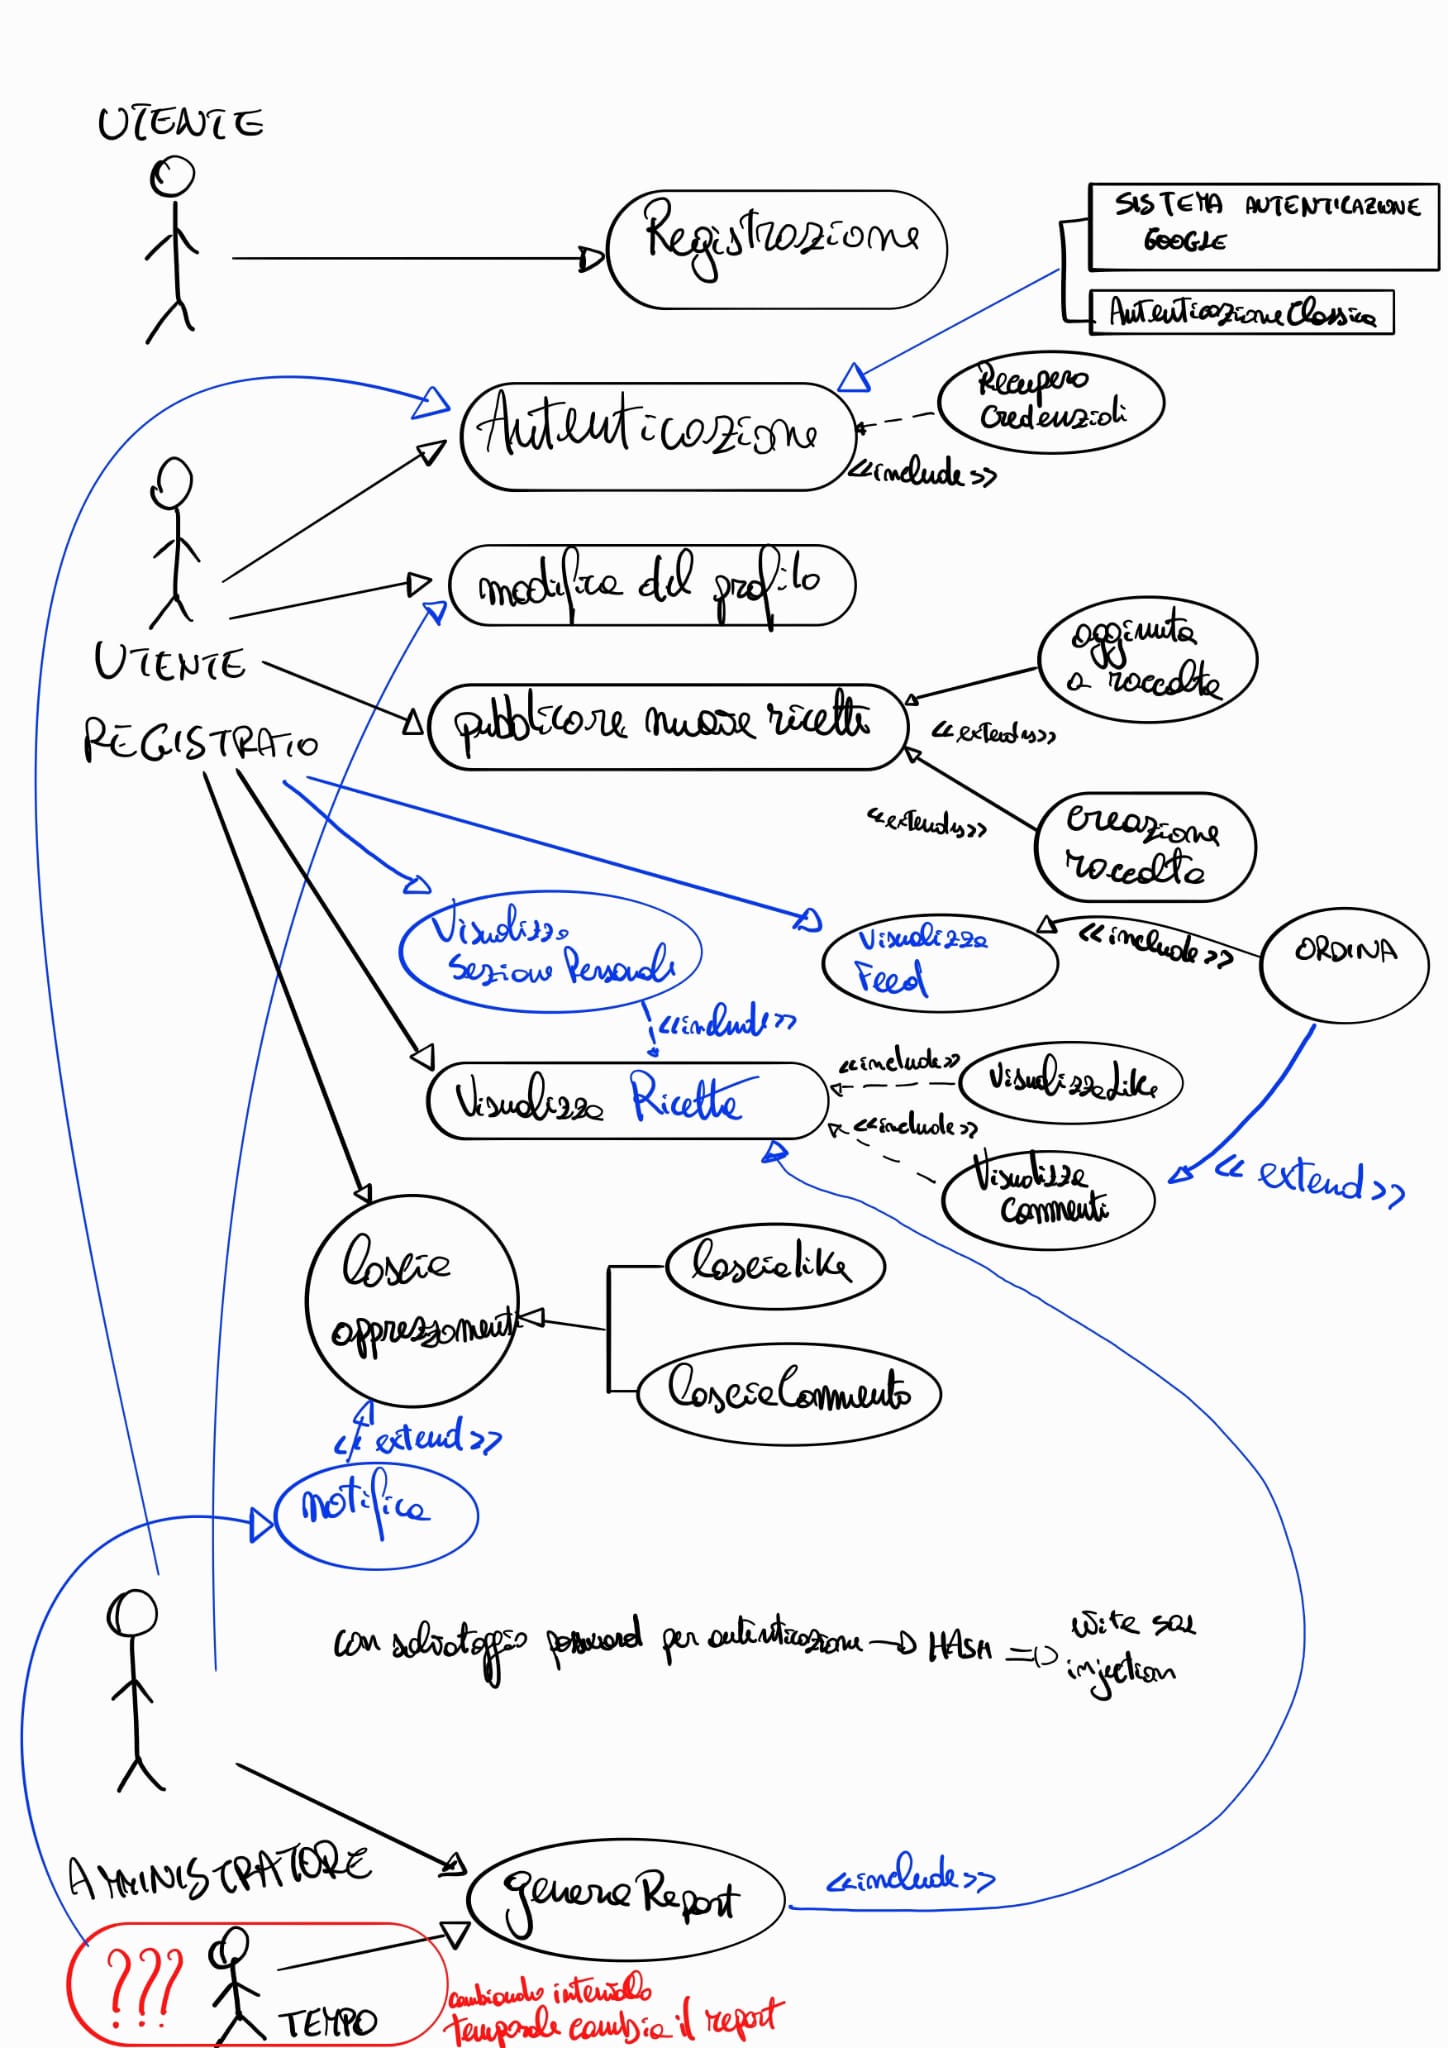 UTENTE
Registrazione
SISTEMA AUTENTICAZIONE
GOOGLE
Autenticazione Classica
Recupero
Credenziali
Autenticazione
<<include>>
modifica del profilo
UTENTE
REGISTRATO
aggiunta
a raccolta
pubblicare nuove ricette
<<extends>>
<<extends>>
creazione
raccolta
Visualizza
Sezione Personale
Visualizza
Feed
<<include>>
ORDINA
<<include>>
Visualizza Ricette
<<include>>
VisualizzaLike
<<include>>
Visualizza
Commenti
<<extend>>
lascia
apprezzamenti
lascialike
lascia Commento
<<extend>>
notifica
con salvataggio password per autenticazione → HASH ⇒
injection
AMMINISTRATORE
genera Report
<<include>>
???
TEMPO
cambiando intervallo
temporale cambia il report